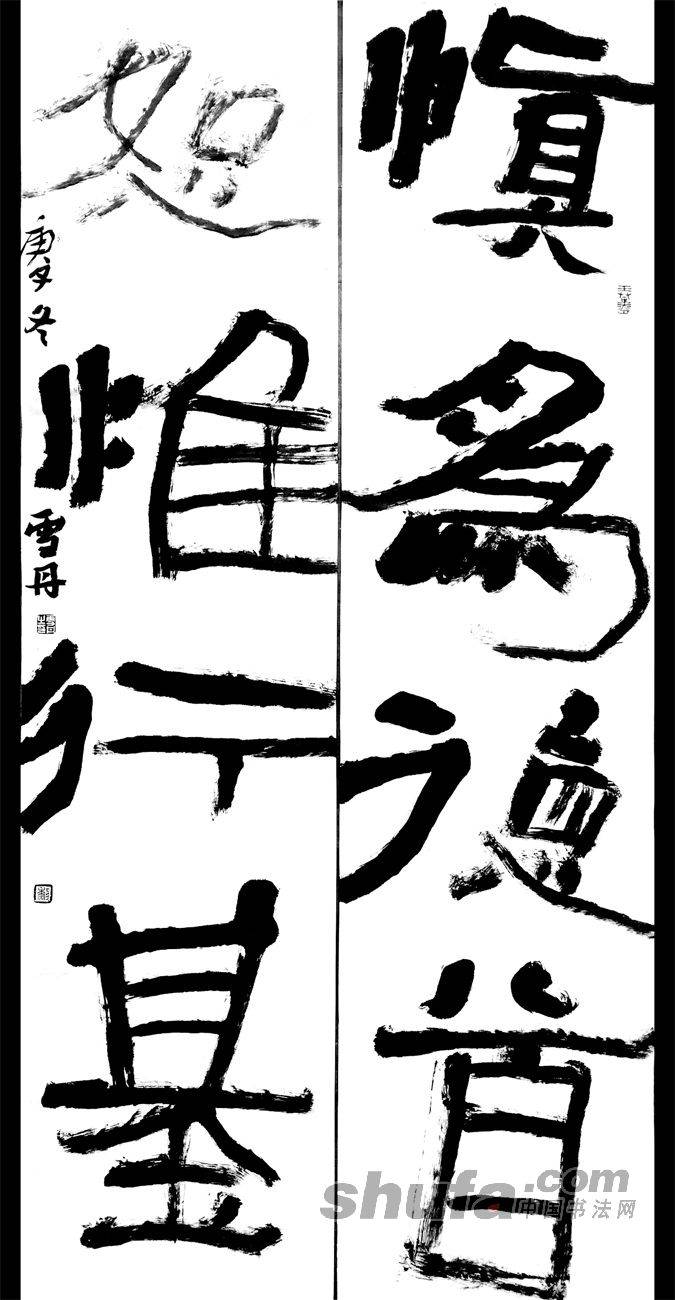 慎為德首
恕惟行基
庚 冬 雪丹
shufa.com
中国书法网